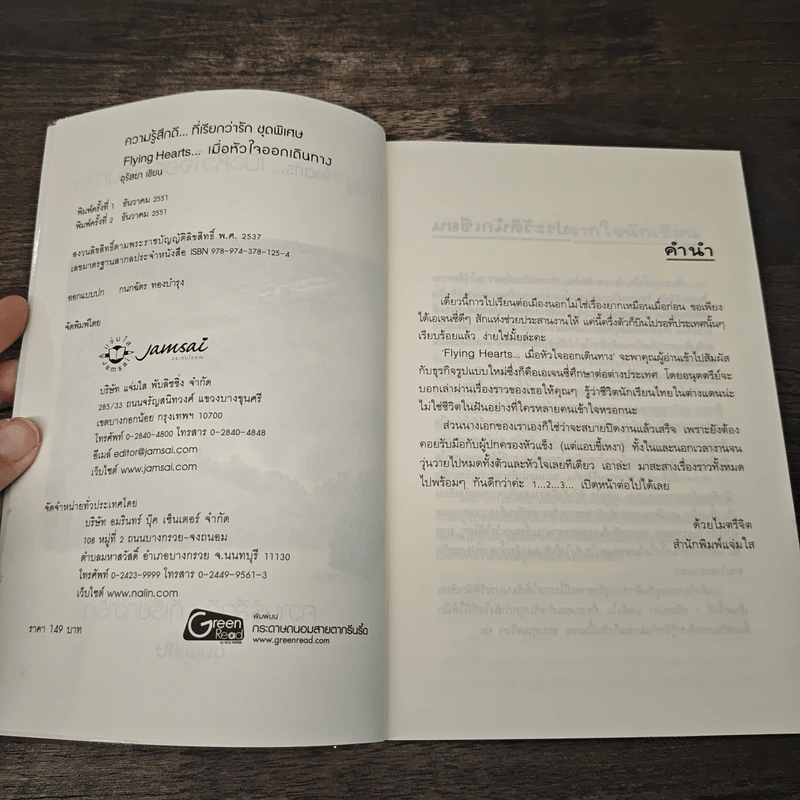 ความรู้สึกดี... ที่เรียกว่ารัก ชุดพิเศษ
Flying Hearts... เมื่อหัวใจออกเดินทาง
อุรัสยา เขียน
พิมพ์ครั้งที่ 1 ธันวาคม 2551
พิมพ์ครั้งที่ 2 ธันวาคม 2551
สงวนลิขสิทธิ์ตามพระราชบัญญัติลิขสิทธิ์ พ.ศ. 2537
เลขมาตรฐานสากลประจำหนังสือ ISBN 978-974-378-125-4
ออกแบบปก กนกฉัตร ทองบำรุง
จัดพิมพ์โดย
แจ่มใส Jamsai
Jamsai
บริษัท แจ่มใส พับลิชชิ่ง จำกัด
285/33 ถนนจรัญสนิทวงศ์ แขวงบางขุนศรี
เขตบางกอกน้อย กรุงเทพฯ 10700
โทรศัพท์ 0-2840-4800 โทรสาร 0-2840-4848
อีเมล์ editor@jamsai.com
เว็บไซต์ www.jamsai.com
จัดจำหน่ายทั่วประเทศโดย
บริษัท อมรินทร์ บุ๊ค เซ็นเตอร์ จำกัด
108 หมู่ที่ 2 ถนนบางกรวย-จงถนอม
ตำบลมหาสวัสดิ์ อำเภอบางกรวย จ.นนทบุรี 11130
โทรศัพท์ 0-2423-9999 โทรสาร 0-2449-9561-3
เว็บไซต์ www.naiin.com
ราคา 149 บาท
Green Read
พิมพ์บน
กระดาษถนอมสายตากรีนรี้ด
www.greenread.com
คำนำ
เดี๋ยวนี้การไปเรียนต่อเมืองนอกไม่ใช่เรื่องยากเหมือนเมื่อก่อน ขอเพียง
ได้เอเจนซี่ดีๆ สักแห่งช่วยประสานงานให้ แค่นี้ครึ่งตัวก็บินไปรอที่ประเทศนั้นๆ
เรียบร้อยแล้ว ง่ายใช่มั้ยล่ะคะ
'Flying Hearts... เมื่อหัวใจออกเดินทาง' จะพาคุณผู้อ่านเข้าไปสัมผัส
กับธุรกิจรูปแบบใหม่ซึ่งก็คือเอเจนซี่ศึกษาต่อต่างประเทศ โดยอนุตตรีย์จะ
บอกเล่าผ่านเรื่องราวของเธอให้คุณๆ รู้ว่าชีวิตนักเรียนไทยในต่างแดนน่ะ
ไม่ใช่ชีวิตในฝันอย่างที่ใครหลายคนเข้าใจหรอกนะ
ส่วนนางเอกของเราเองก็ใช่ว่าจะสบายปิดงานแล้วเสร็จ เพราะยังต้อง
คอยรับมือกับผู้ปกครองหัวแข็ง (แต่แอบขี้เหงา) ทั้งในและนอกเวลางานจน
วุ่นวายไปหมดทั้งตัวและหัวใจเลยทีเดียว เอาล่ะ! มาสะสางเรื่องราวทั้งหมด
ไปพร้อมๆ กันดีกว่าค่ะ 1...2...3... เปิดหน้าต่อไปได้เลย
ด้วยไมตรีจิต
สำนักพิมพ์แจ่มใส